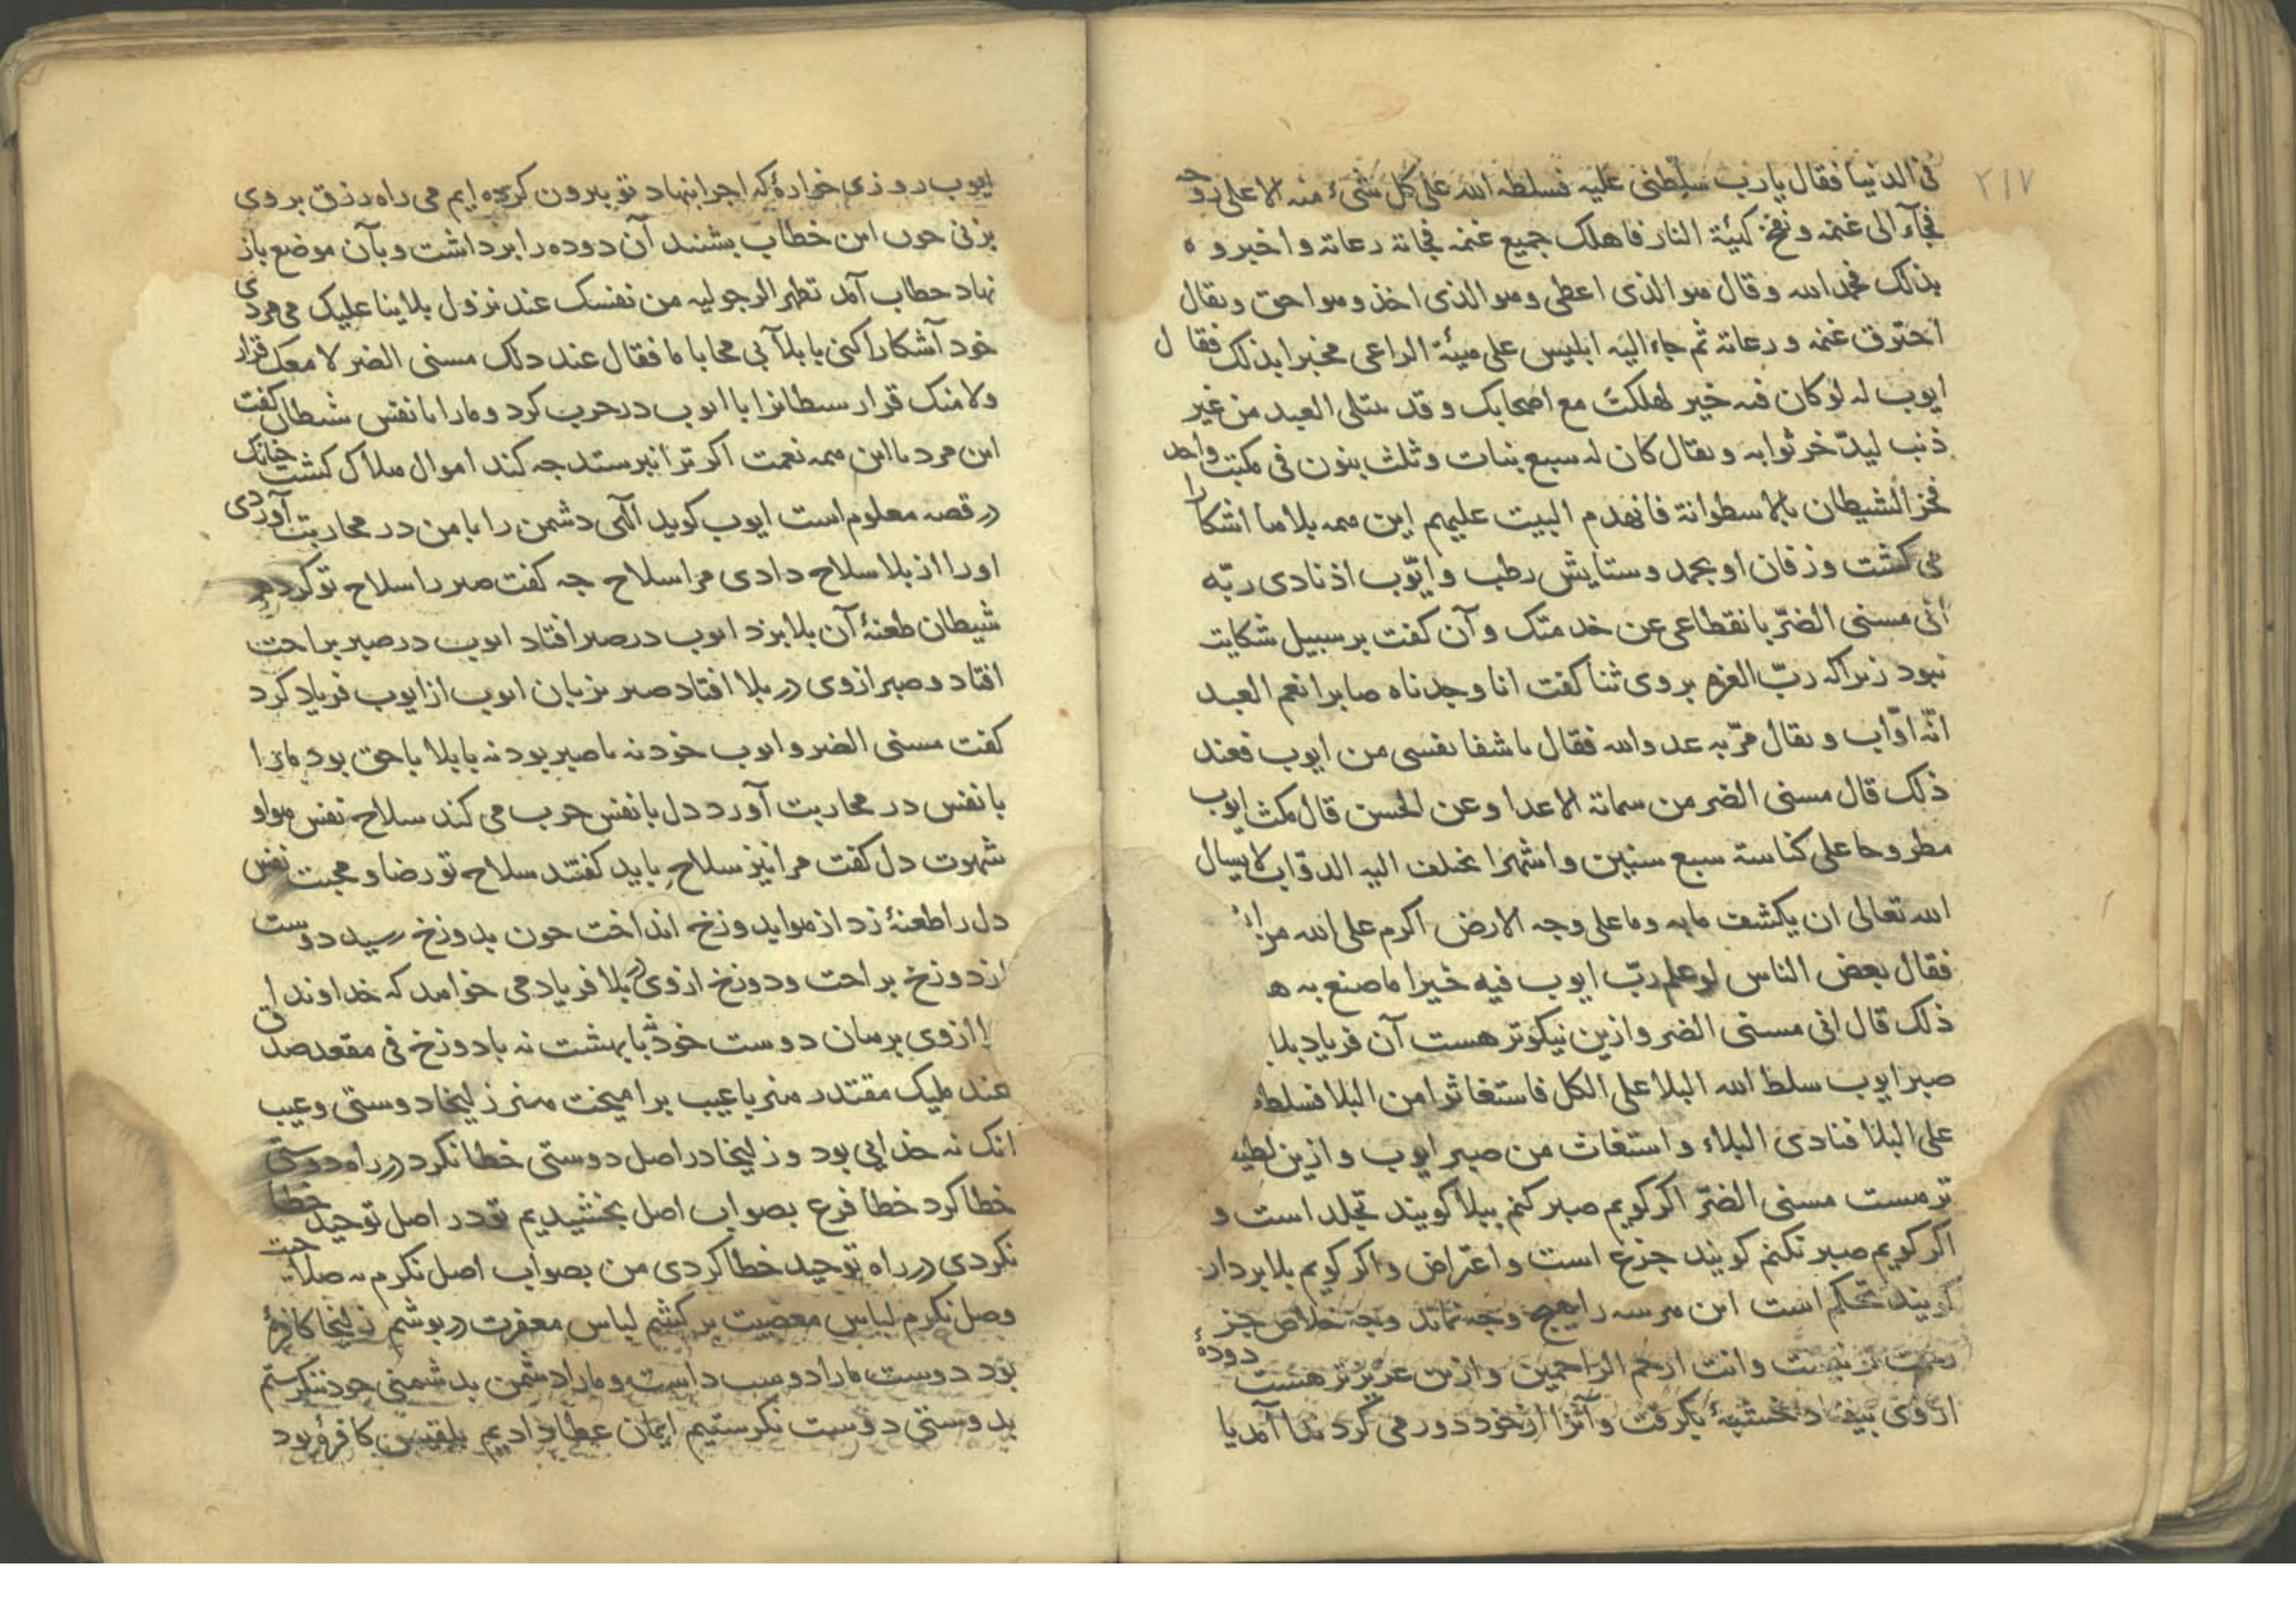 ٢١٧
فی الدنیا فقال یا رب سلّطنی علیه فسلطه الله علی کل شیء منه الا علی روحه
فجآء الی غنمه و نفخ کهیّة النار فاهلک جمیع غنمه فجاته رعاته و اخبروه
بذلک فحمد الله و قال هو الذی اعطی و هو الذی اخذ و هو احق و یقال
احترق غنمه و رعاته ثم جاء الیه ابلیس علی هیئة الراعی مخبرا بذلک فقال
ایوب له لو کان فیه خیر لهلکت مع اصحابک و قد یبتلی العبد من غیر
ذنب لیدّخر ثوابه و یقال کان له سبع بنات و ثلث بنون فی مکتب واحد
فخز الشیطان بالاسطوانة فانهدم البیت علیهم این همه بلاها آشکارا
می کشت و زفان او بحمد و ستایش رطب و ایّوب اذ نادی ربّه
انی مسنی الضرّ بانقطاعی عن خدمتک و آن کفت بر سبیل شکایت
نبود زیرا که ربّ العزه بر وی ثنا کفت انا وجدناه صابرا نعم العبد
انّه اوّاب و یقال مرّ به عدو الله فقال ما شفا نفسی من ایوب فعند
ذلک قال مسنی الضر من شماتة الاعدا و عن الحسن قال مکث ایوب
مطروحا علی کناسة سبع سنین و اشهرا تختلف الیه الدوّاب لا یسال
الله تعالی ان یکشف ما به و ما علی وجه الارض اکرم علی الله من ایوب
فقال بعض الناس لو علم ربّ ایوب فیه خیرا ما صنع به
ذلک قال انی مسنی الضر و ازین نیکوتر هست آن فریاد بلا
صبر ایوب سلط الله البلا علی الکل فاستغاثوا من البلا فسلط
علی البلا فنادی البلاء و استغاث من صبر ایوب و ازین لطیف
تر هست مسنی الضرّ اکر کویم صبر کنم ببلا کویند تجلد است و
اکر کویم صبر نکنم کویند جزع است و اعتراض و اکر کویم بلا بردار
کویند تحکم است این هر سه را هیچ وجه نماند وجه خلاص جز
رحمت تو نیست و انت ارحم الراحمین و ازین عزیزتر هست دودهٔ
از وی بیفتاد خشبهٔ بکرفت و آنرا از خود دور می کرد ندا آمد یا
ایوب روزی خوارهٔ که اجرا بنهاد تو بیرون کرده ایم می راه رزق بر وی
بزنی چون این خطاب بشنید آن دوده را برداشت و بآن موضع باز
نهاد خطاب آمد تظهر الرجولیه من نفسک عند نزول بلاینا علیک می مردی
خود آشکارا کنی با بلآ بی محابا ما فقال عند ذلک مسنی الضر لا معک قرار
ولا منک قرار شیطانرا با ایوب در حرب کرد و ما را با نفس شیطان کفت
این مرد با این همه نعمت اکر ترا نپرستد چه کند اموال هلاک کشت چنانک
در قصه معلوم است ایوب کوید الهی دشمن را با من در محاربت آوردی
او را از بلا سلاح دادی مرا سلاح چه کفت صبر را سلاح تو کردم
شیطان طعنهٔ آن بلا بزد ایوب در صبر افتاد ایوب در صبر براحت
افتاد و صبر از وی در بلا افتاد صبر بزبان ایوب از ایوب فریاد کرد
کفت مسنی الضر و ایوب خود نه با صبر بود نه با بلا با حق بود ما را
با نفس در محاربت آورد دل با نفس حرب می کند سلاح نفس هوا و
شهوت دل کفت مرا نیز سلاح باید کفتند سلاح تو رضا و محبت نفس
دل را طعنهٔ زد از هوا بدوزخ انداخت چون بدوزخ رسید دوست
از دوزخ براحت و دوزخ از وی در بلا فریاد می خواهد که خداوندا
از وی برهان دوست خود با بهشت نه با دوزخ فی مقعد صدق
عند ملیک مقتدر هنر با عیب برامیخت هنر زلیخا دوستی و عیب
انک نه خدایی بود و زلیخا در اصل دوستی خطا نکرد در راه دوستی
خطا کرد خطا فرع بصواب اصل بخشیدیم تو در اصل توحید خطا
نکردی در راه توحید خطا کردی من بصواب اصل نکرم نه صلاحیت
وصل نکرم لباس معصیت بر کشم لباس مغفرت درپوشم زلیخا کافره
بود دوست ما را دوست داشت و ما را دشمن بدشمنی خود ننکرستم
بدوستی دوست نکرستیم ایمان عطا دادیم بلقیس کافره بود